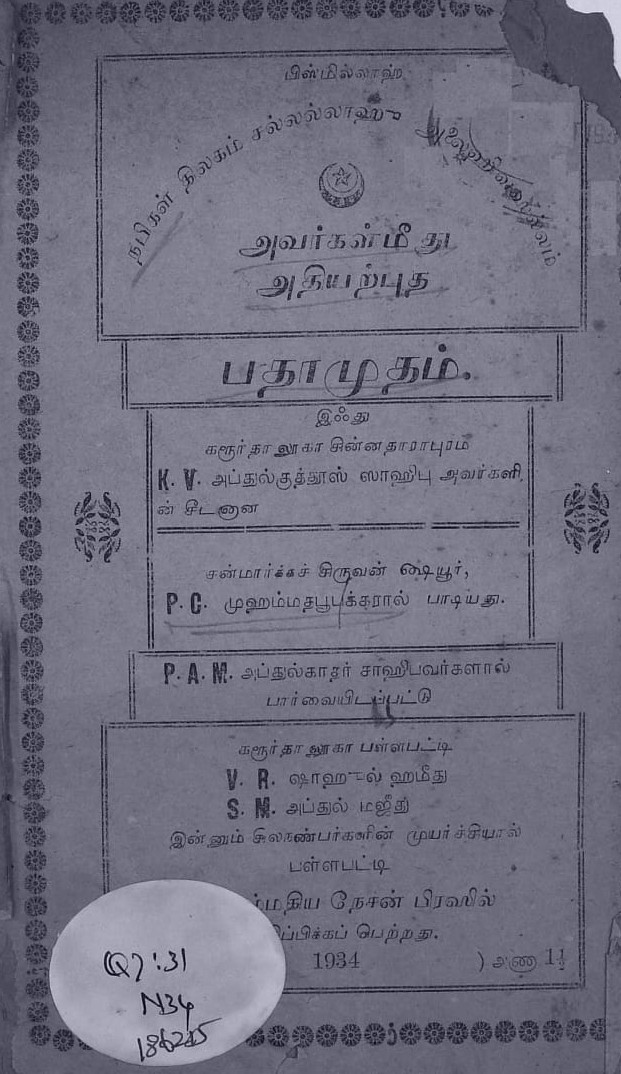 பிஸ்மில்லாஹ்
நபிகள் திலகம் சல்லல்லாஹு
அவர்கள்மீது
அதியற்புத
பதாமுதம்.
இஃது
கரூர்தாலூகா சின்னதாராபுரம்
K. V. அப்துல்குத்தூஸ் ஸாஹிபு அவர்களி
ன் சீடனான
சன்மார்க்கச் சிருவன்
P. C. முஹம்மதபூபக்கரால் பாடியது.
P. A. M. அப்துல்காதர் சாஹிபவர்களால்
பார்வையிடப்பட்டு
கரூர்தாலூகா பள்ளபட்டி
V. R. ஷாஹுல் ஹமீது
S. M. அப்துல் மஜீது
இன்னும் சிலநண்பர்களின் முயர்ச்சியால்
பள்ளபட்டி
ம்மதிய நேசன் பிரஸில்
ப்பிக்கப் பெற்றது.
1934 ) அணு 1½
(Q) : 31
N34
186215